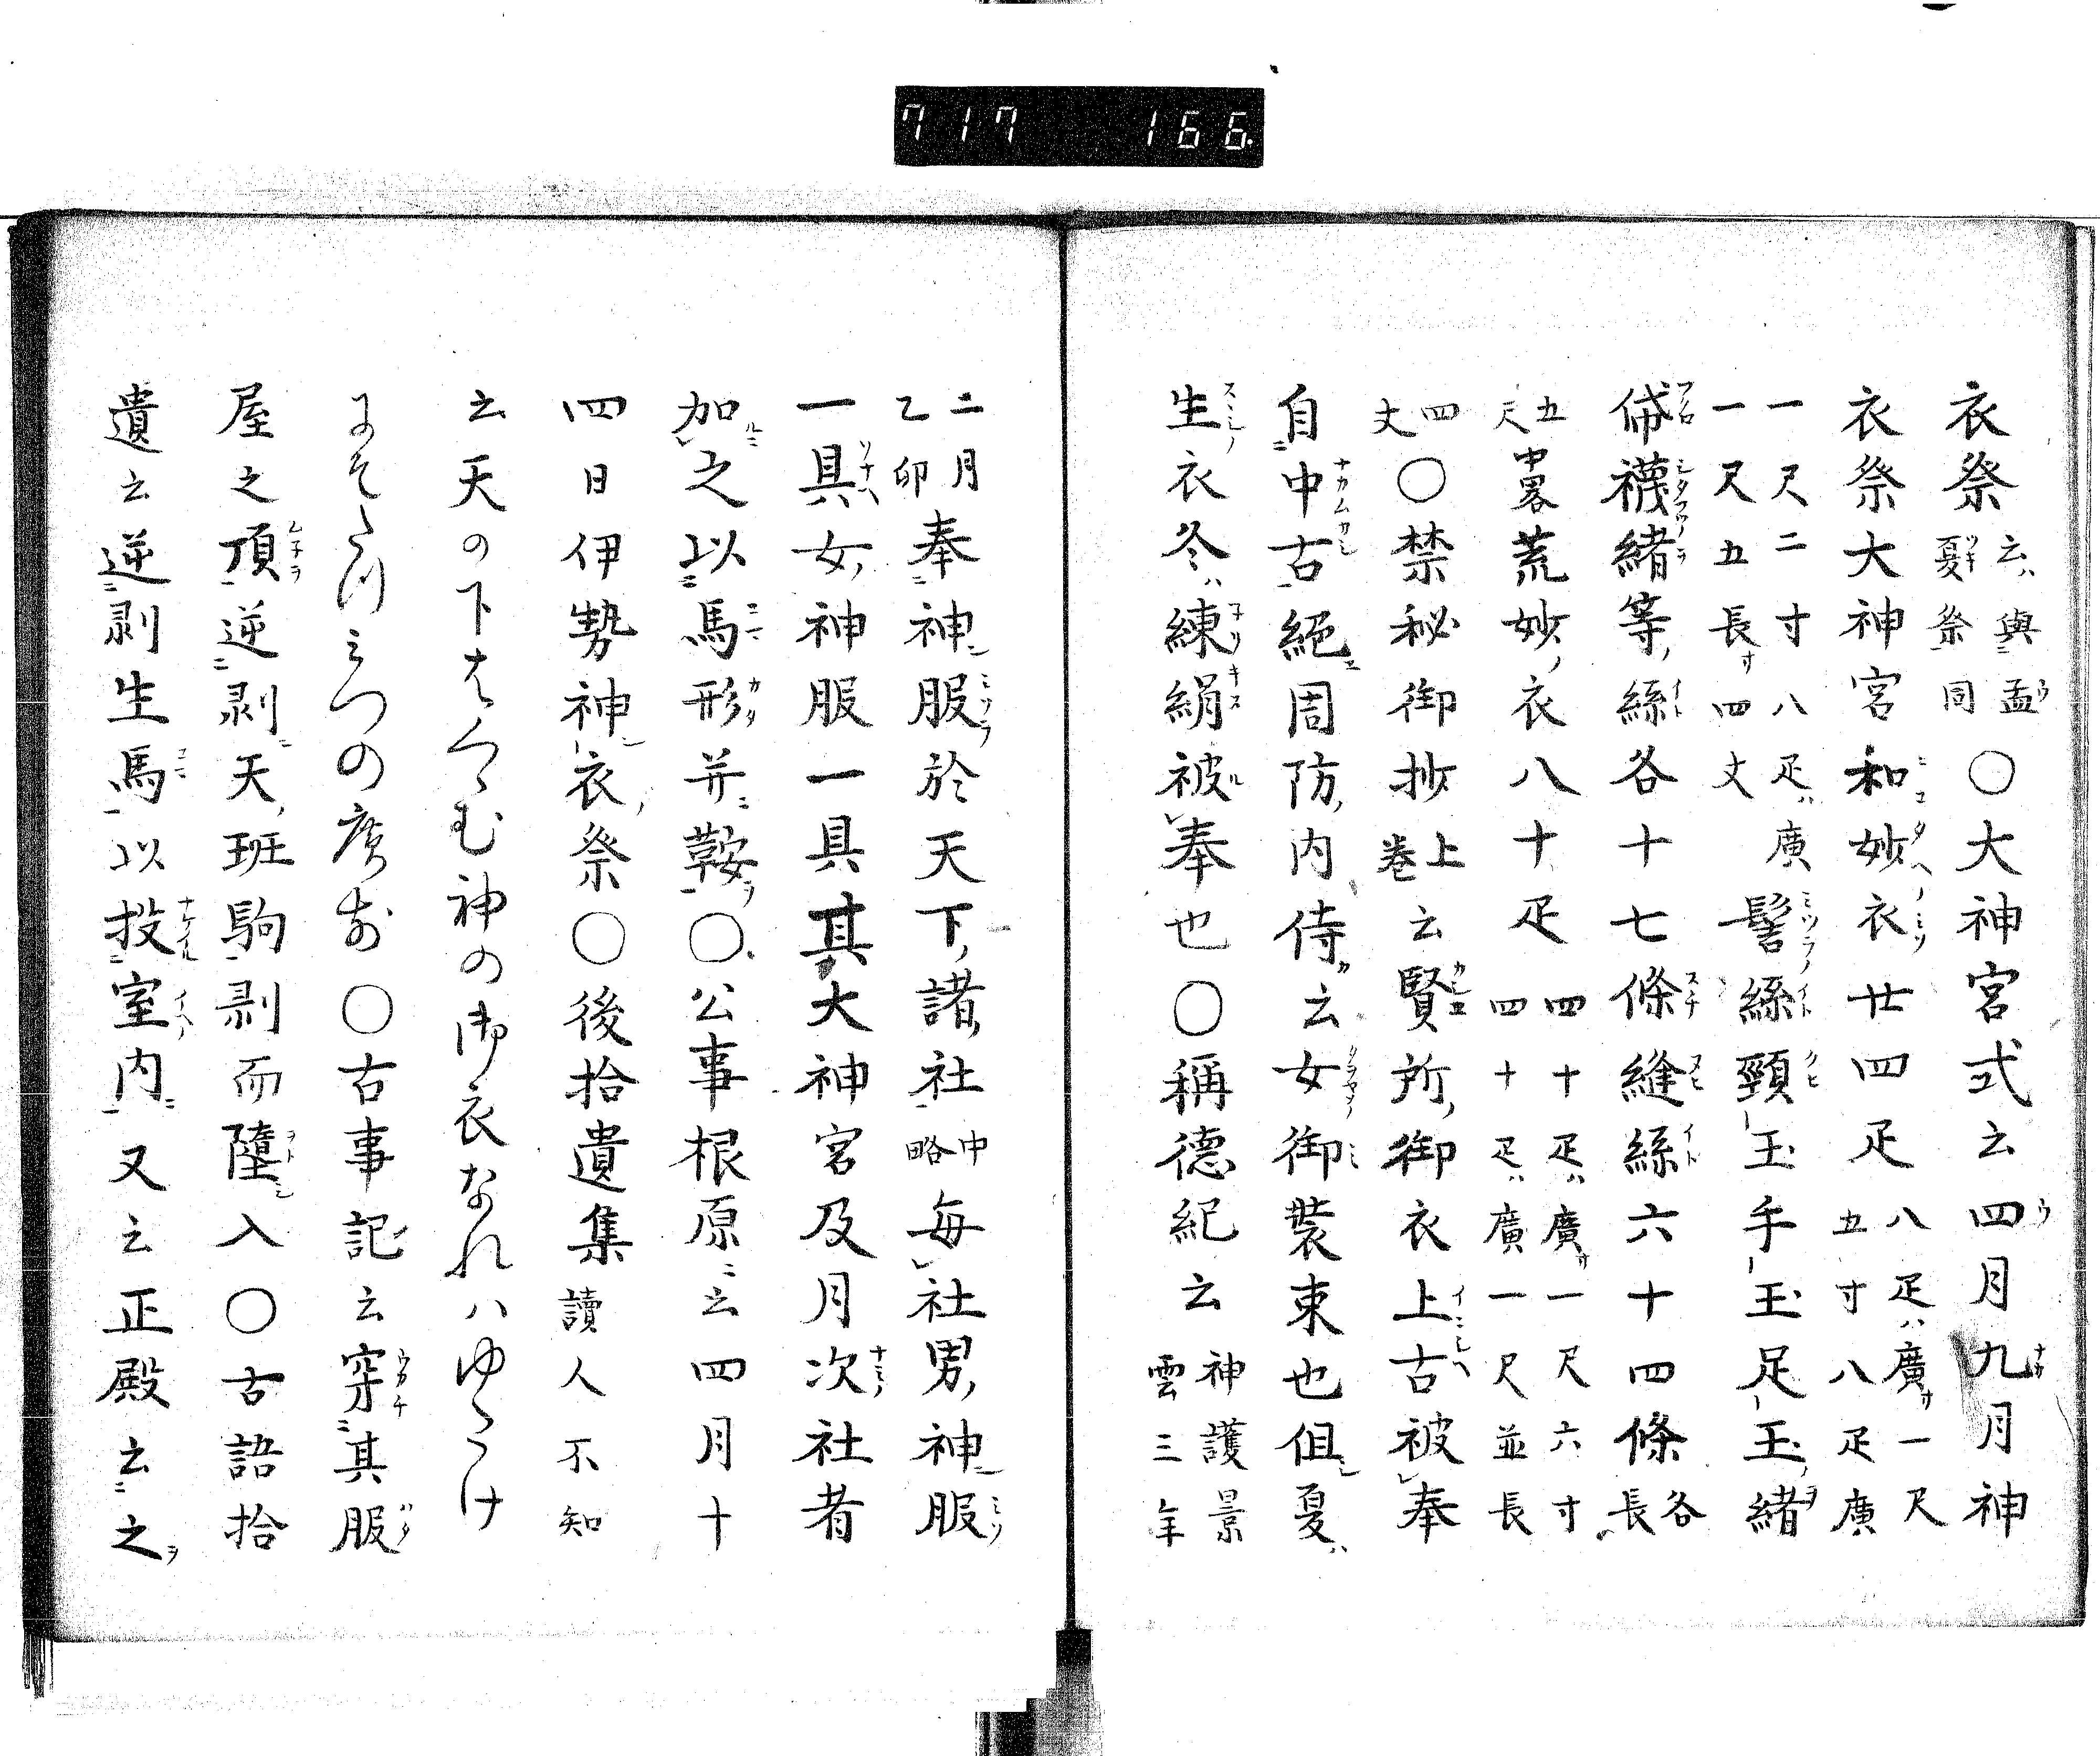 717 166
衣祭云與孟夏祭同〇大神宮式云四月九月神
衣祭大神宮和妙衣廿四疋八疋廣一尺五寸八疋廣
一尺二寸八疋廣一尺五長四丈髻絲頸玉手玉足玉緒
帒襪緒等絲各十七條縫絲六十四條各長
五尺中畧荒妙衣八十疋四十疋廣一尺六寸四十疋廣一尺並長
四丈〇禁秘御抄上卷云賢所御衣上古被奉
自中古絕周防內侍云女御裝束也但夏
生衣冬練絹被奉也〇稱德紀云神護景雲三年
二月乙卯奉神服於天下諸社中略每社男神服
一具女神服一具其大神宮及月次社者
加之以馬形并鞍〇公事根原云四月十
四日伊勢神衣祭〇後拾遺集讀人不知
云天の下はくゝむ神の御衣なれハゆたけ
にそたつるみつの廣前〇古事記云穿其服
屋之頂逆剥天班駒剥而墮入〇古語拾
遺云逆剥生馬以投室內又云正殿云之